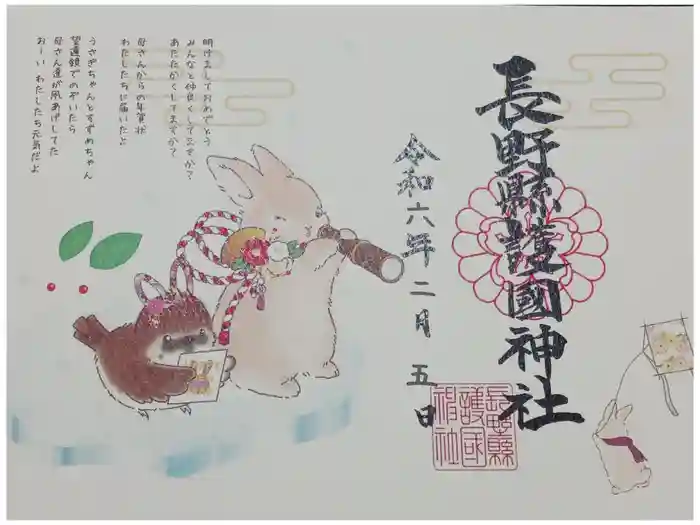 長野縣護國神社
令和六年二月五日
長野縣
護國
神社
明けましておめでとう
みんなと仲良くしてますか？
あたたかくしてますか？
母さんからの年賀状
わたしたちに届いたよ
うさぎちゃんとすずめちゃん
望遠鏡でのぞいたら
母さん達が凧あげしてた
おーい わたしたち元気だよ